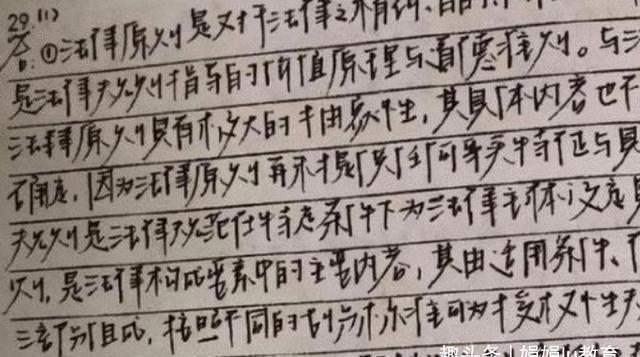 29.(1)
答:①法律原则是对于法律之
是法律规则背后的价值原理与道德准则。与法
法律原则具有极大的抽象性,其具体内容也不
确定,因为法律原则再不提供任何事实特征与具
规则是法律规范在特定条件下为法律主体设定具
则,是法律构成要素中的主要内容,其由适用条件、
三部分组成,按照不同的划分标准可为
趣头条 | 娟娟心教育